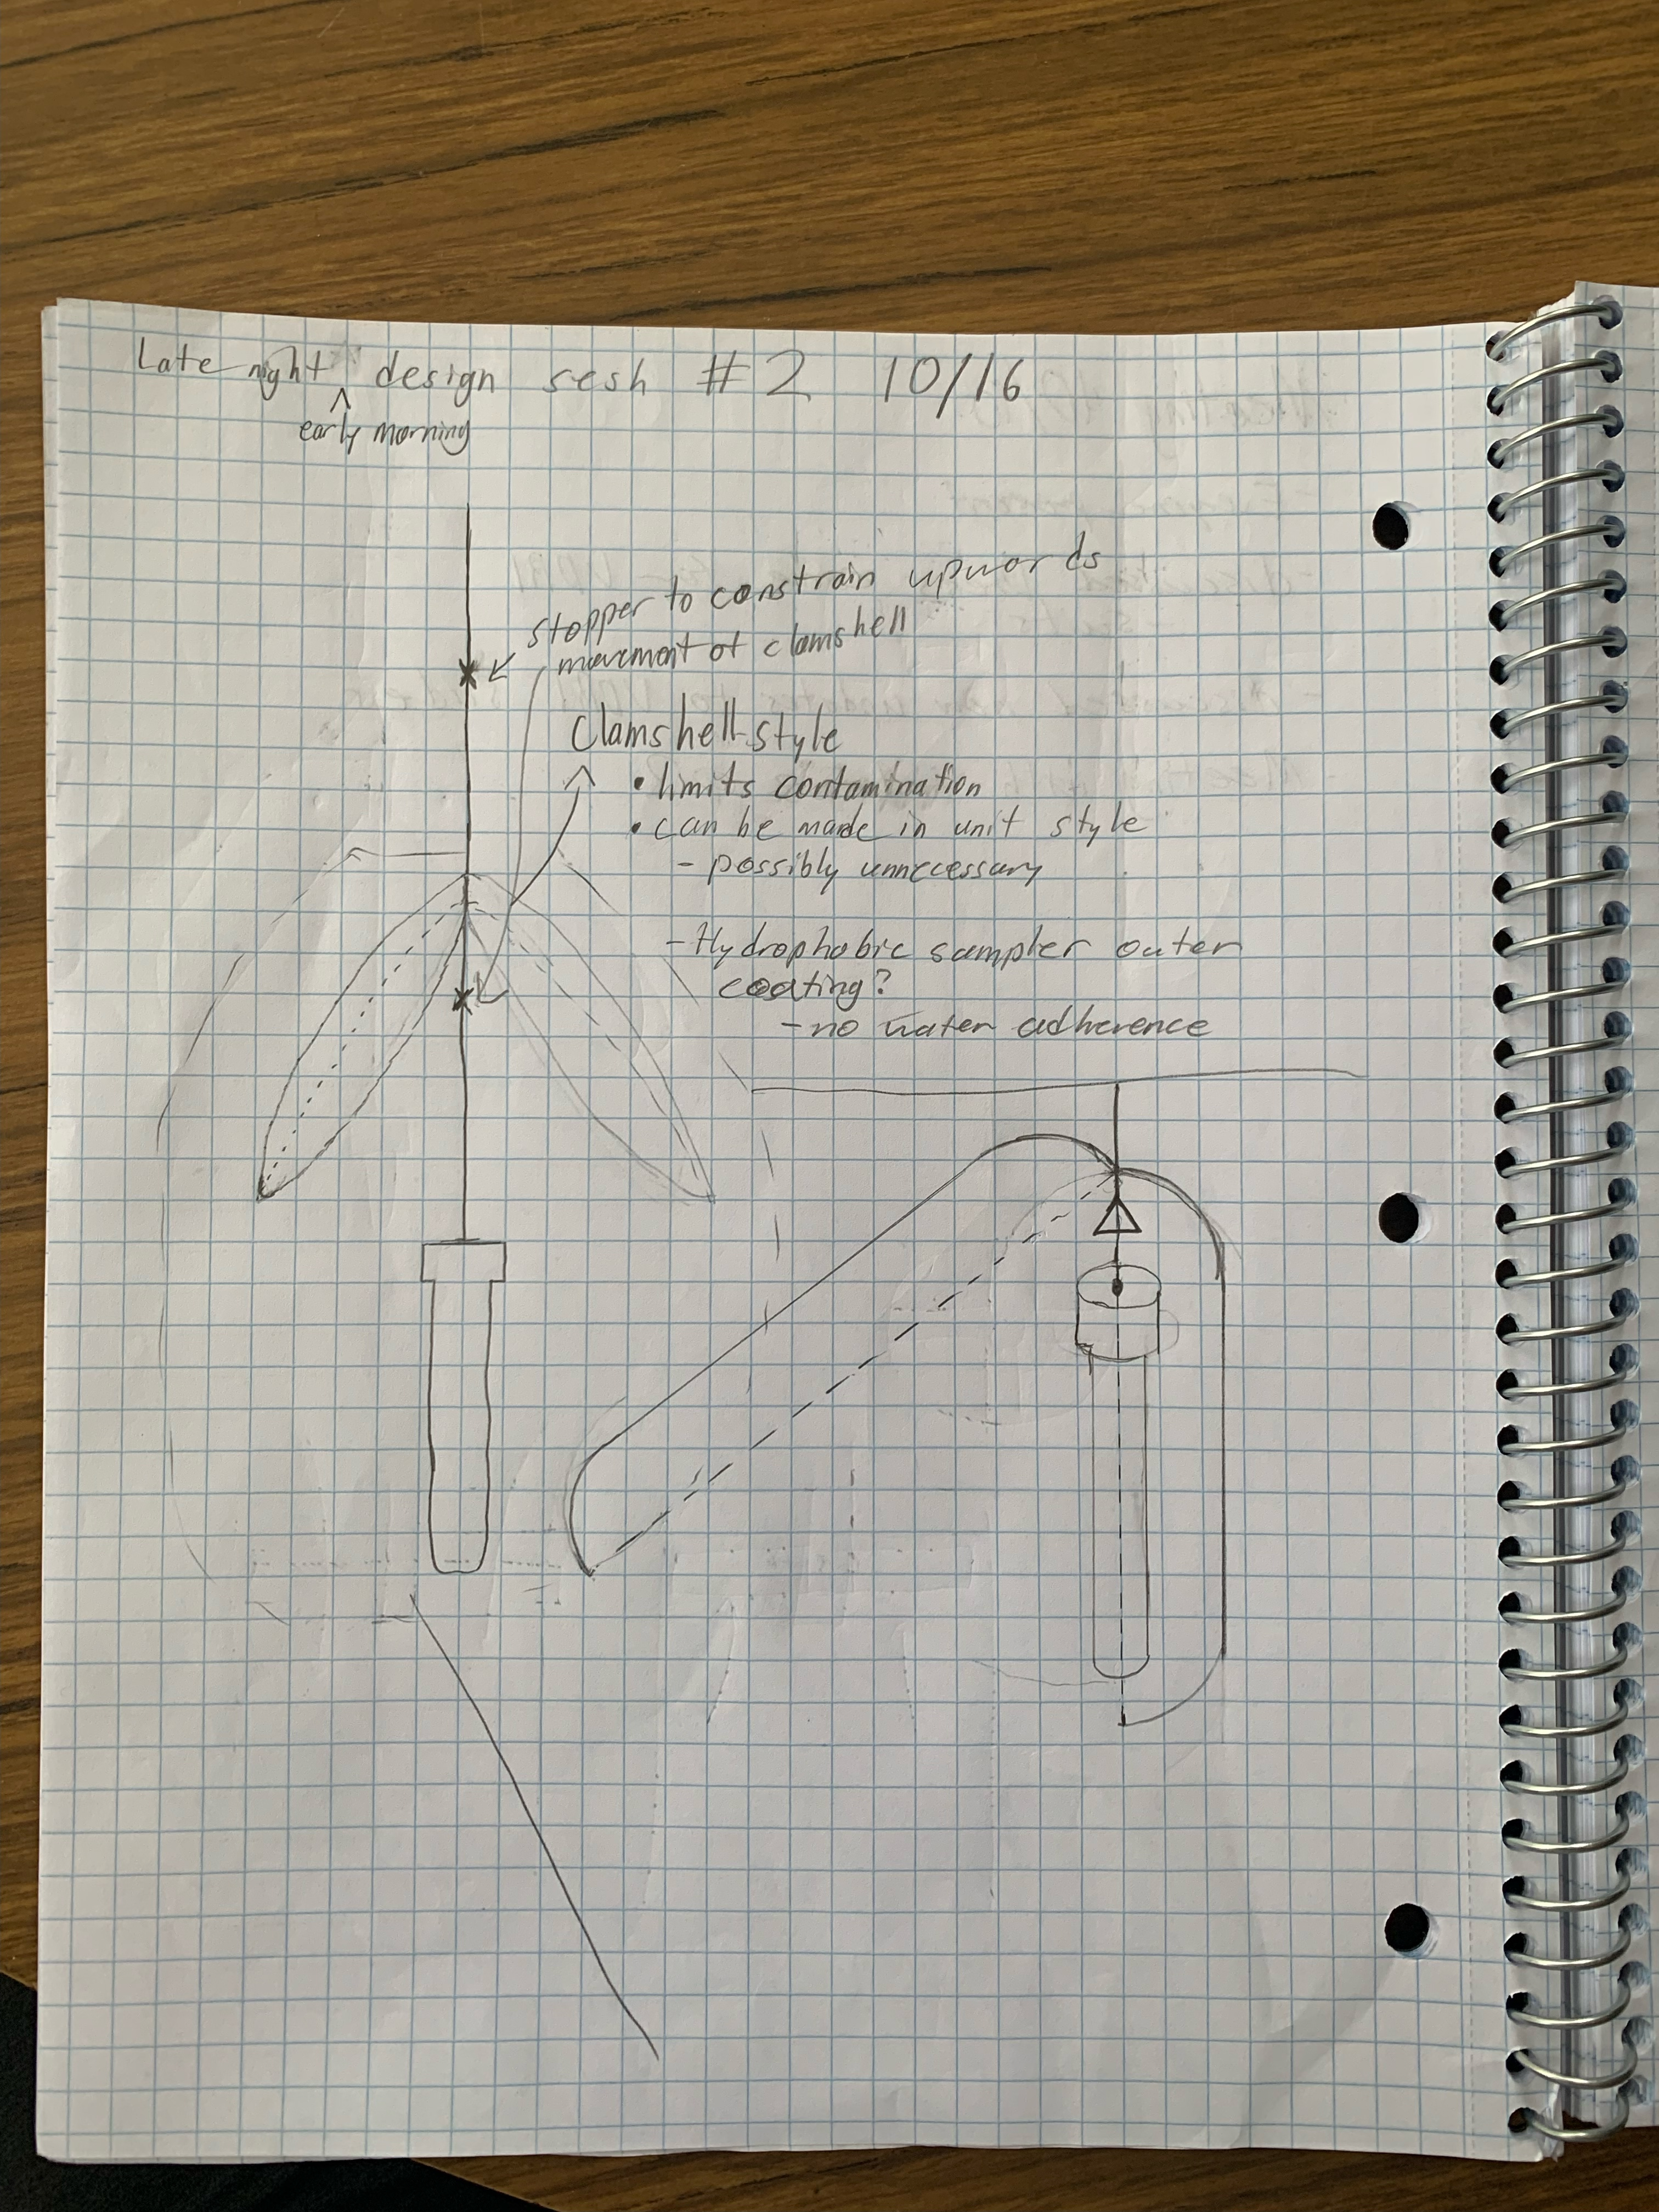 Late night design sesh #2 10/16
^
early morning
stopper to constrain upwards
movement of clamshell
Clamshell style
• limits contamination
• can be made in unit style
- possibly unnecessary
- Hydrophobic sampler outer
coating?
- no water adherence